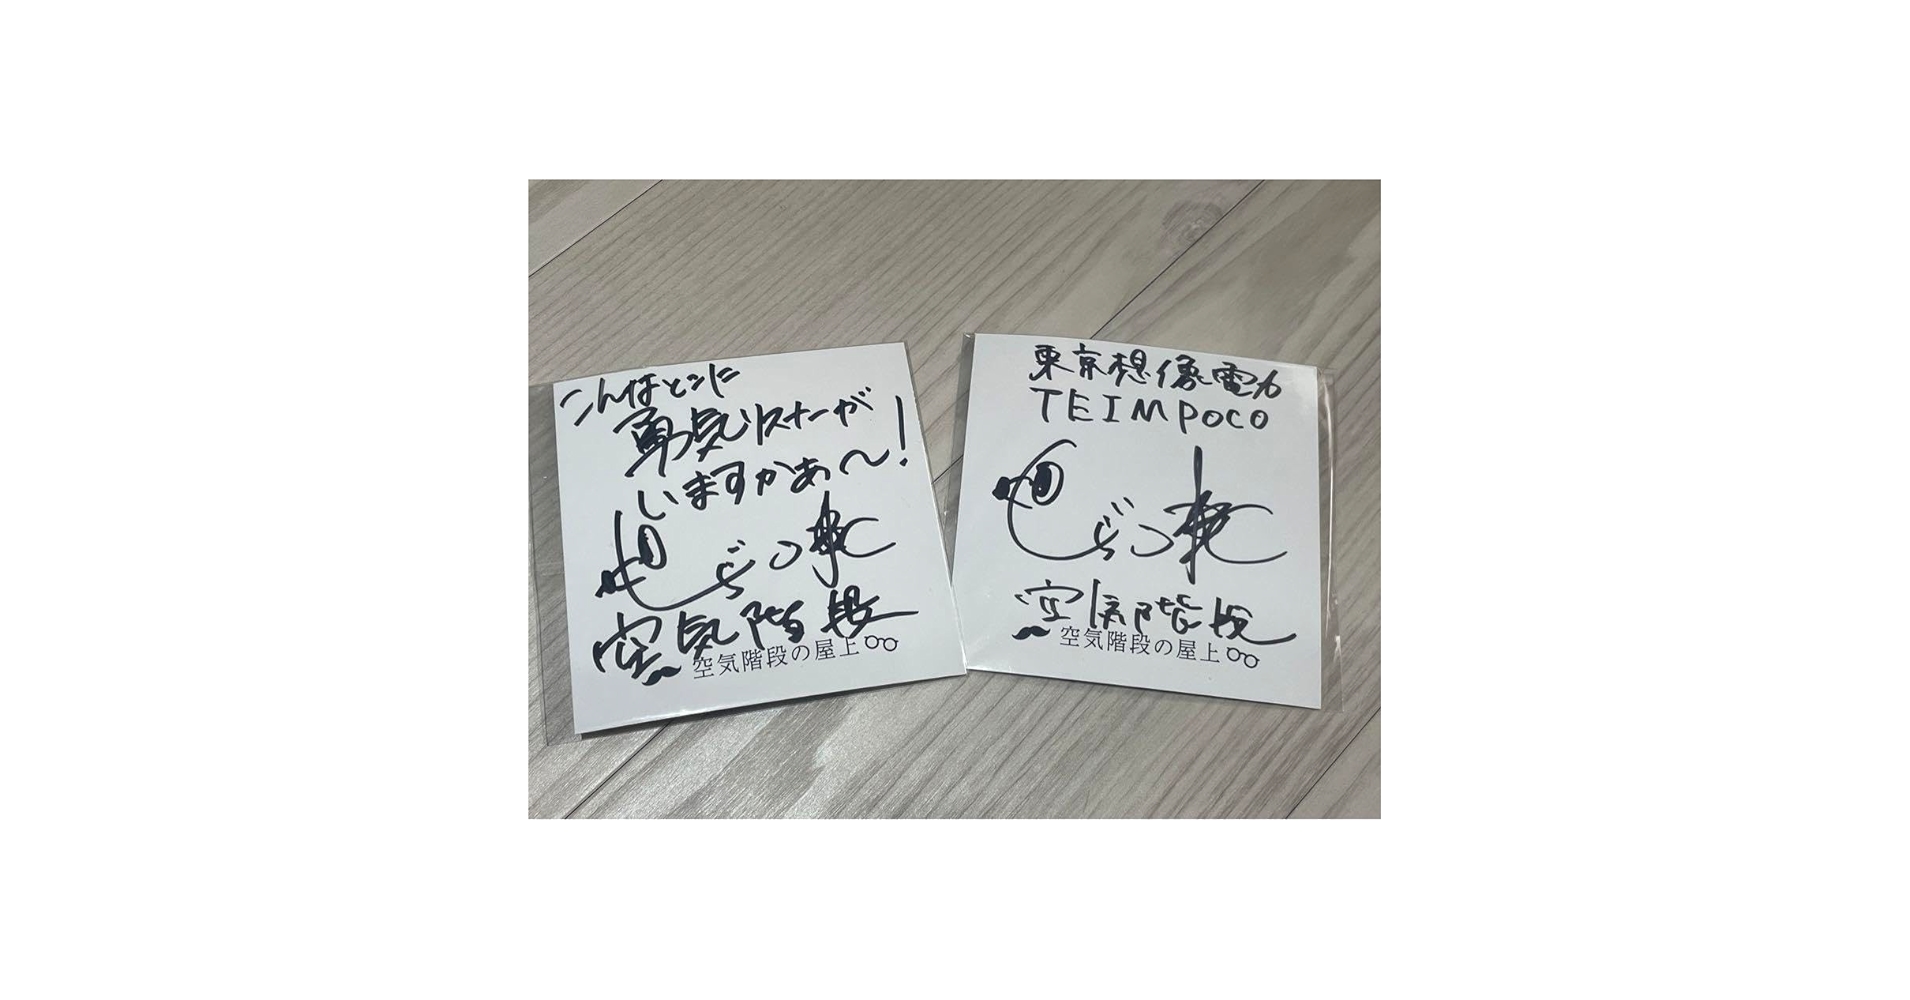 こんなとこに
勇気リスナーが
いますかぁ〜!
空気階段
空気階段の屋上
東京想像電力
TEIMPOCO
空気階段
空気階段の屋上